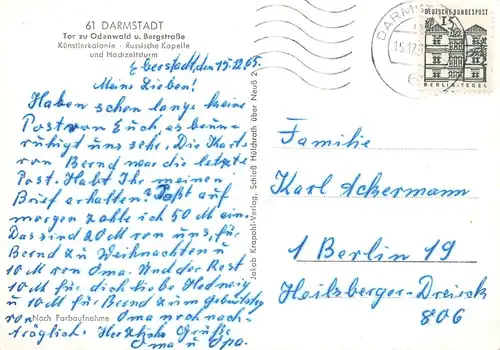 61 DARMSTADT
Tor zu Odenwald u. Bergstraße
Künstlerkolonie · Russische Kapelle
und Hochzeitsturm
Eberstadt, den 15.12.65.
Meine Lieben!
Haben schon lange keine
Post von Euch, es beun-
ruhigt uns sehr. Die Karte
von Bernd war die letzte
Post. Habt Ihr meinen
Brief erhalten? Paßt auf
morgen zahle ich 50 M ein.
Das sind 20 M von uns, für
Bernd zu Weihnachten u
10 M von Oma. Und der Rest
10 M für dich liebe Hedwig
u 10 M für Bernd zum Geburtstag
von Oma noch nach-
träglich. Herzliche Grüße
Oma u Opa.
Nach Farbaufnahme
Jakob Krapohl-Verlag, Schloß Hülchrath über Neuß 2
DARMSTADT
15.12.65
DEUTSCHE BUNDESPOST
15
BERLIN-TEGEL
Familie
Karl Ackermann
1 Berlin 19
Heilsberger-Dreieck
806